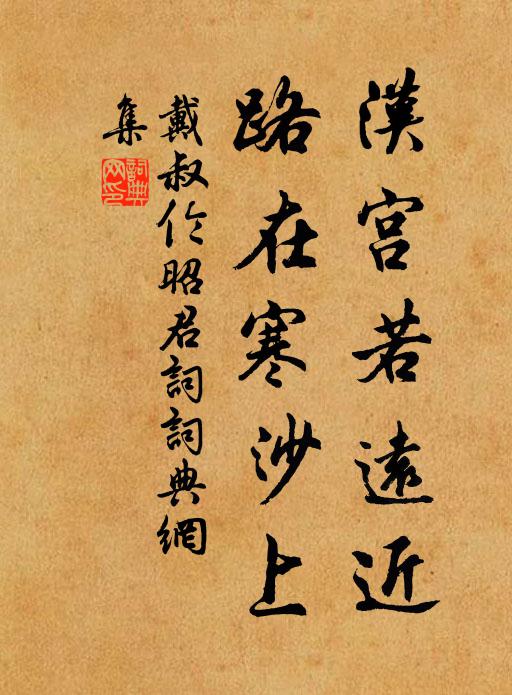 漢宮若遠近
路在寒沙上
戴叔倫昭君詞詞典網
集
詞典網印